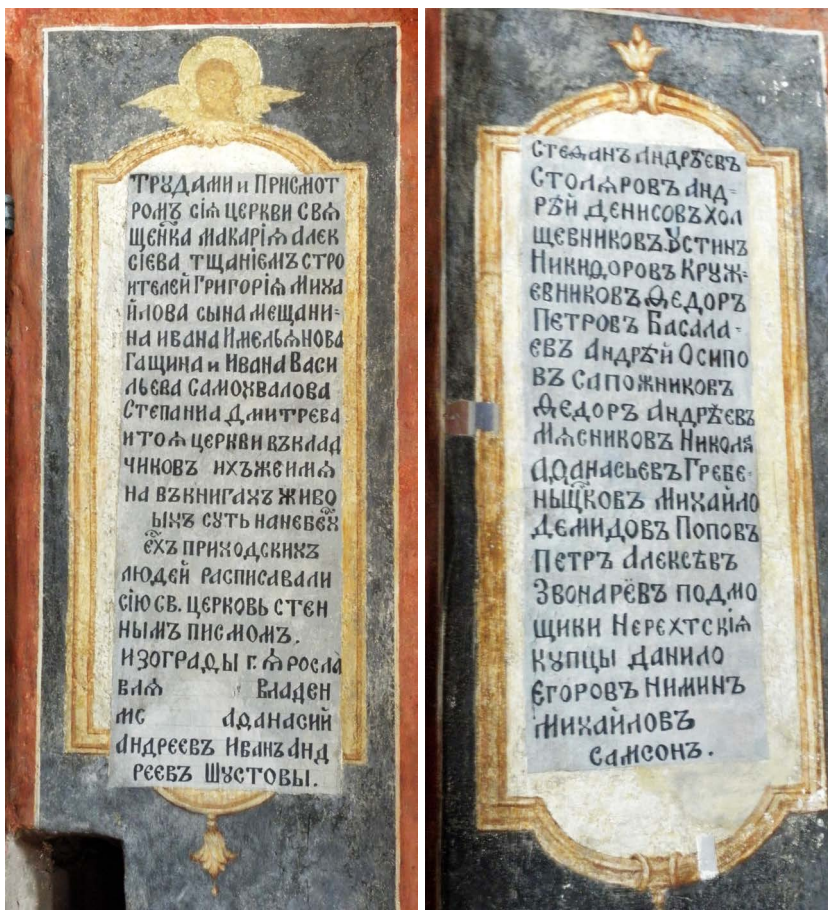 трꙋдами и Присмот
ромъ сіѧ церкви свѧ
щен̾ка макаріѧ алек
сіева тщаніемъ стро
ителей Григоріѧ Миха
йлова сына мещани=
на ивана Имельѧнова
Гащина и Ивана Васи
льева Самохвалова
Степаниа Дмитрева
и тоѧ церкви въклад
чиковъ ихъже имѧ
на въ книгахъ живо
ыхъ сꙋть на
ѣхъ приходскихъ
людей расписавали
сію св. церковь стен
нымъ писмомъ.
изограды г. Ѧросла
влѧ Владен
мс Аѳанасий
Андреевъ Иванъ Анд
реевъ Шꙋстовы.
Стеѳанъ Андрѣевъ
Столѧровъ Анд=
рѣй Денисовъ Хол
щевниковъ. Ꙋстинъ
Никидоровъ Круж=
евниковъ Ѳедоръ
Петровъ Басала=
евъ Андрѣй Осипо
въ Сапожниковъ
Ѳедоръ Андрѣевъ
Мѧсниковъ Николѧ
Аѳанасьевъ Гребе=
ньщиковъ Михайло
Демидов Поповъ
Петръ Алексѣвъ
Звонарёвъ подмо
щики Нерехтскіѧ
кꙋпцы Данило
Егоровъ Ниминъ
Михайловъ
Самсонъ.